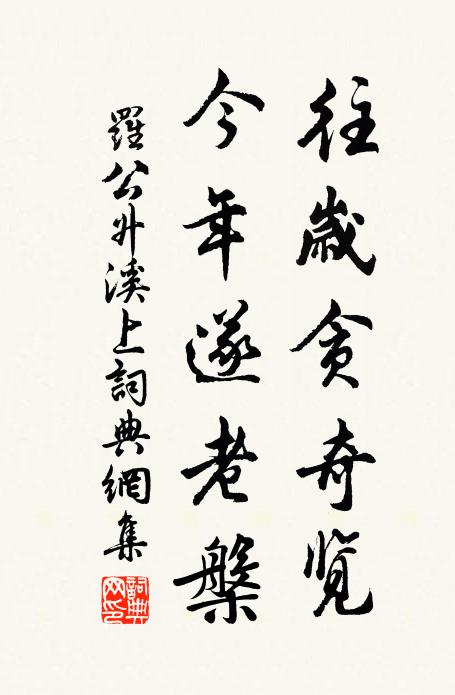 往歲貪奇覽
今年遂老槃
羅公升溪上詞典網集
詞典網印